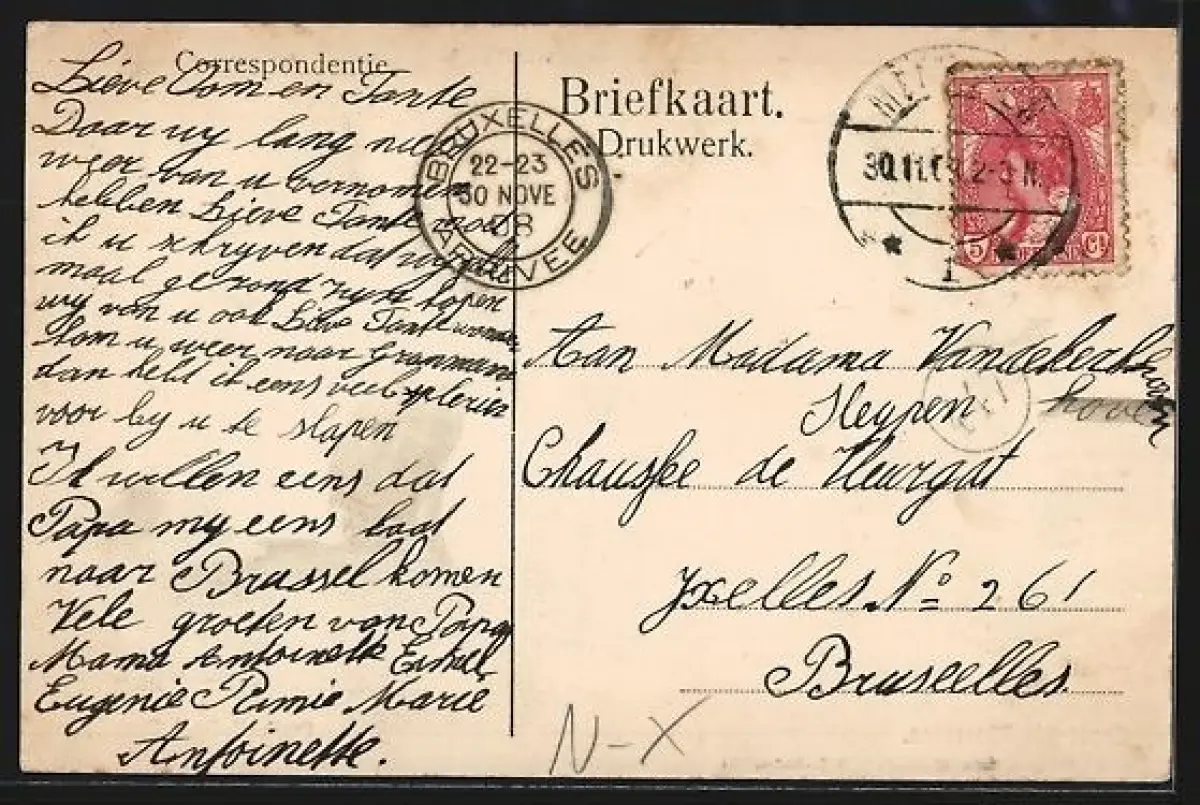 Correspondentie
Lieve Oom en Tante
Daar wy lang niet
weer van u vernomen
hebben Lieve Tante moet
ik u schryven dat wy
maal gezond zyn hopen
wy van u ook Lieve Tante
kom u weer naar Granmama
dan held ik eens veel plezier
voor by u te slapen
Ik wollen eens dat
Papa my eens laat
naar Brussel komen
Vele groeten van Papa
Mama Antoinette Emiel
Eugenie Remie Marie
Antoinette.
BRUXELLES
22-23
30 NOVE
08
ARRIVEE
Briefkaart.
Drukwerk.
30.11.0 2-3 N.
1
5 Ct
Aan Madama Vandekerkhoven
Heypen
Chaussee de Vleurgat
Yxelles No 261
Bruscelles
N-X